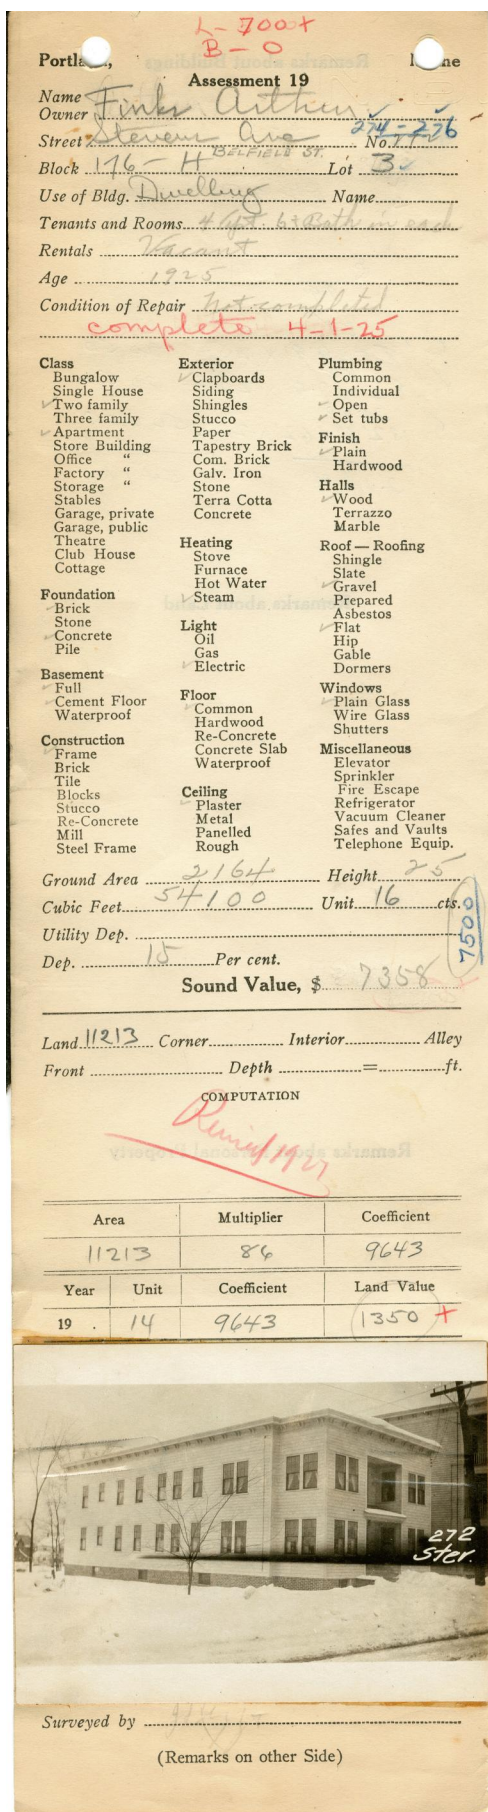 L-700+
B-0
Portla, ne
Assessment 19
Name
Owner Finks Arthur
274-276
Street Stevens Ave No.
BELFIELD ST.
Block 176-H Lot 3
Use of Bldg. Dwelling Name
Tenants and Rooms 4 Apt. 6 & Bath in each
Rentals Vacant
Age 1925
Condition of Repair Not completed
complete 4-1-25
Class
Bungalow
Single House
✓Two family
Three family
✓Apartment
Store Building
Office "
Factory "
Storage "
Stables
Garage, private
Garage, public
Theatre
Club House
Cottage
Foundation
✓Brick
Stone
✓Concrete
Pile
Basement
✓Full
✓Cement Floor
Waterproof
Construction
✓Frame
Brick
Tile
Blocks
Stucco
Re-Concrete
Mill
Steel Frame
Exterior
✓Clapboards
Siding
Shingles
Stucco
Paper
Tapestry Brick
Com. Brick
Galv. Iron
Stone
Terra Cotta
Concrete
Heating
Stove
Furnace
Hot Water
✓Steam
Light
Oil
Gas
✓Electric
Floor
✓Common
Hardwood
Re-Concrete
Concrete Slab
Waterproof
Ceiling
✓Plaster
Metal
Panelled
Rough
Plumbing
Common
Individual
✓Open
✓Set tubs
Finish
✓Plain
Hardwood
Halls
✓Wood
Terrazzo
Marble
Roof — Roofing
Shingle
Slate
✓Gravel
Prepared
Asbestos
✓Flat
Hip
Gable
Dormers
Windows
✓Plain Glass
Wire Glass
Shutters
Miscellaneous
Elevator
Sprinkler
Fire Escape
Refrigerator
Vacuum Cleaner
Safes and Vaults
Telephone Equip.
Ground Area 2164 Height 25
Cubic Feet 54100 Unit 16 cts.
7500
Utility Dep.
Dep. 15 Per cent.
Sound Value, $ 7358
Land 11213 Corner Interior Alley
Front Depth = ft.
COMPUTATION
Revised 1927
Area Multiplier Coefficient
11213 86 9643
Year Unit Coefficient Land Value
19 . 14 9643 1350 +
272
Stev.
Surveyed by
(Remarks on other Side)